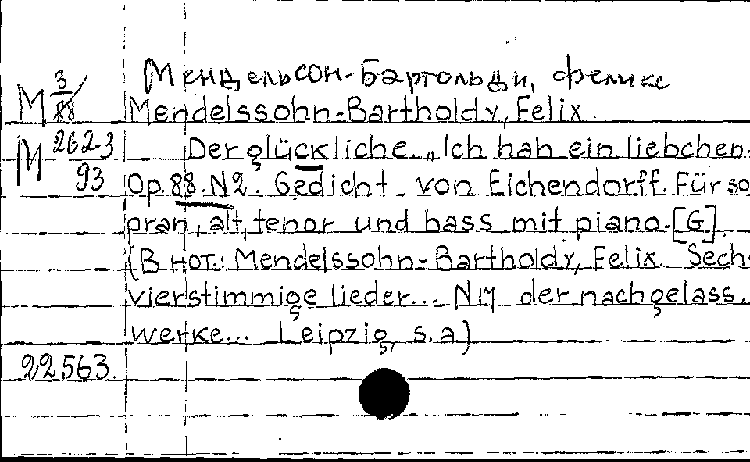 Мендельсон-Бартольди, Феликс
М 3/88
Mendelssohn-Bartholdy, Felix.
М 262-3/93
Der glückliche. „Ich hab ein liebchen.
Op. 88. N2. Gedicht von Eichendorff. Für so
pran, alt, tenor und bass mit piano. [G].
(В нот.: Mendelssohn-Bartholdy, Felix. Sech-
vierstimmige lieder... N17 der nachgelass.
werke... Leipzig, s.a)
22563.